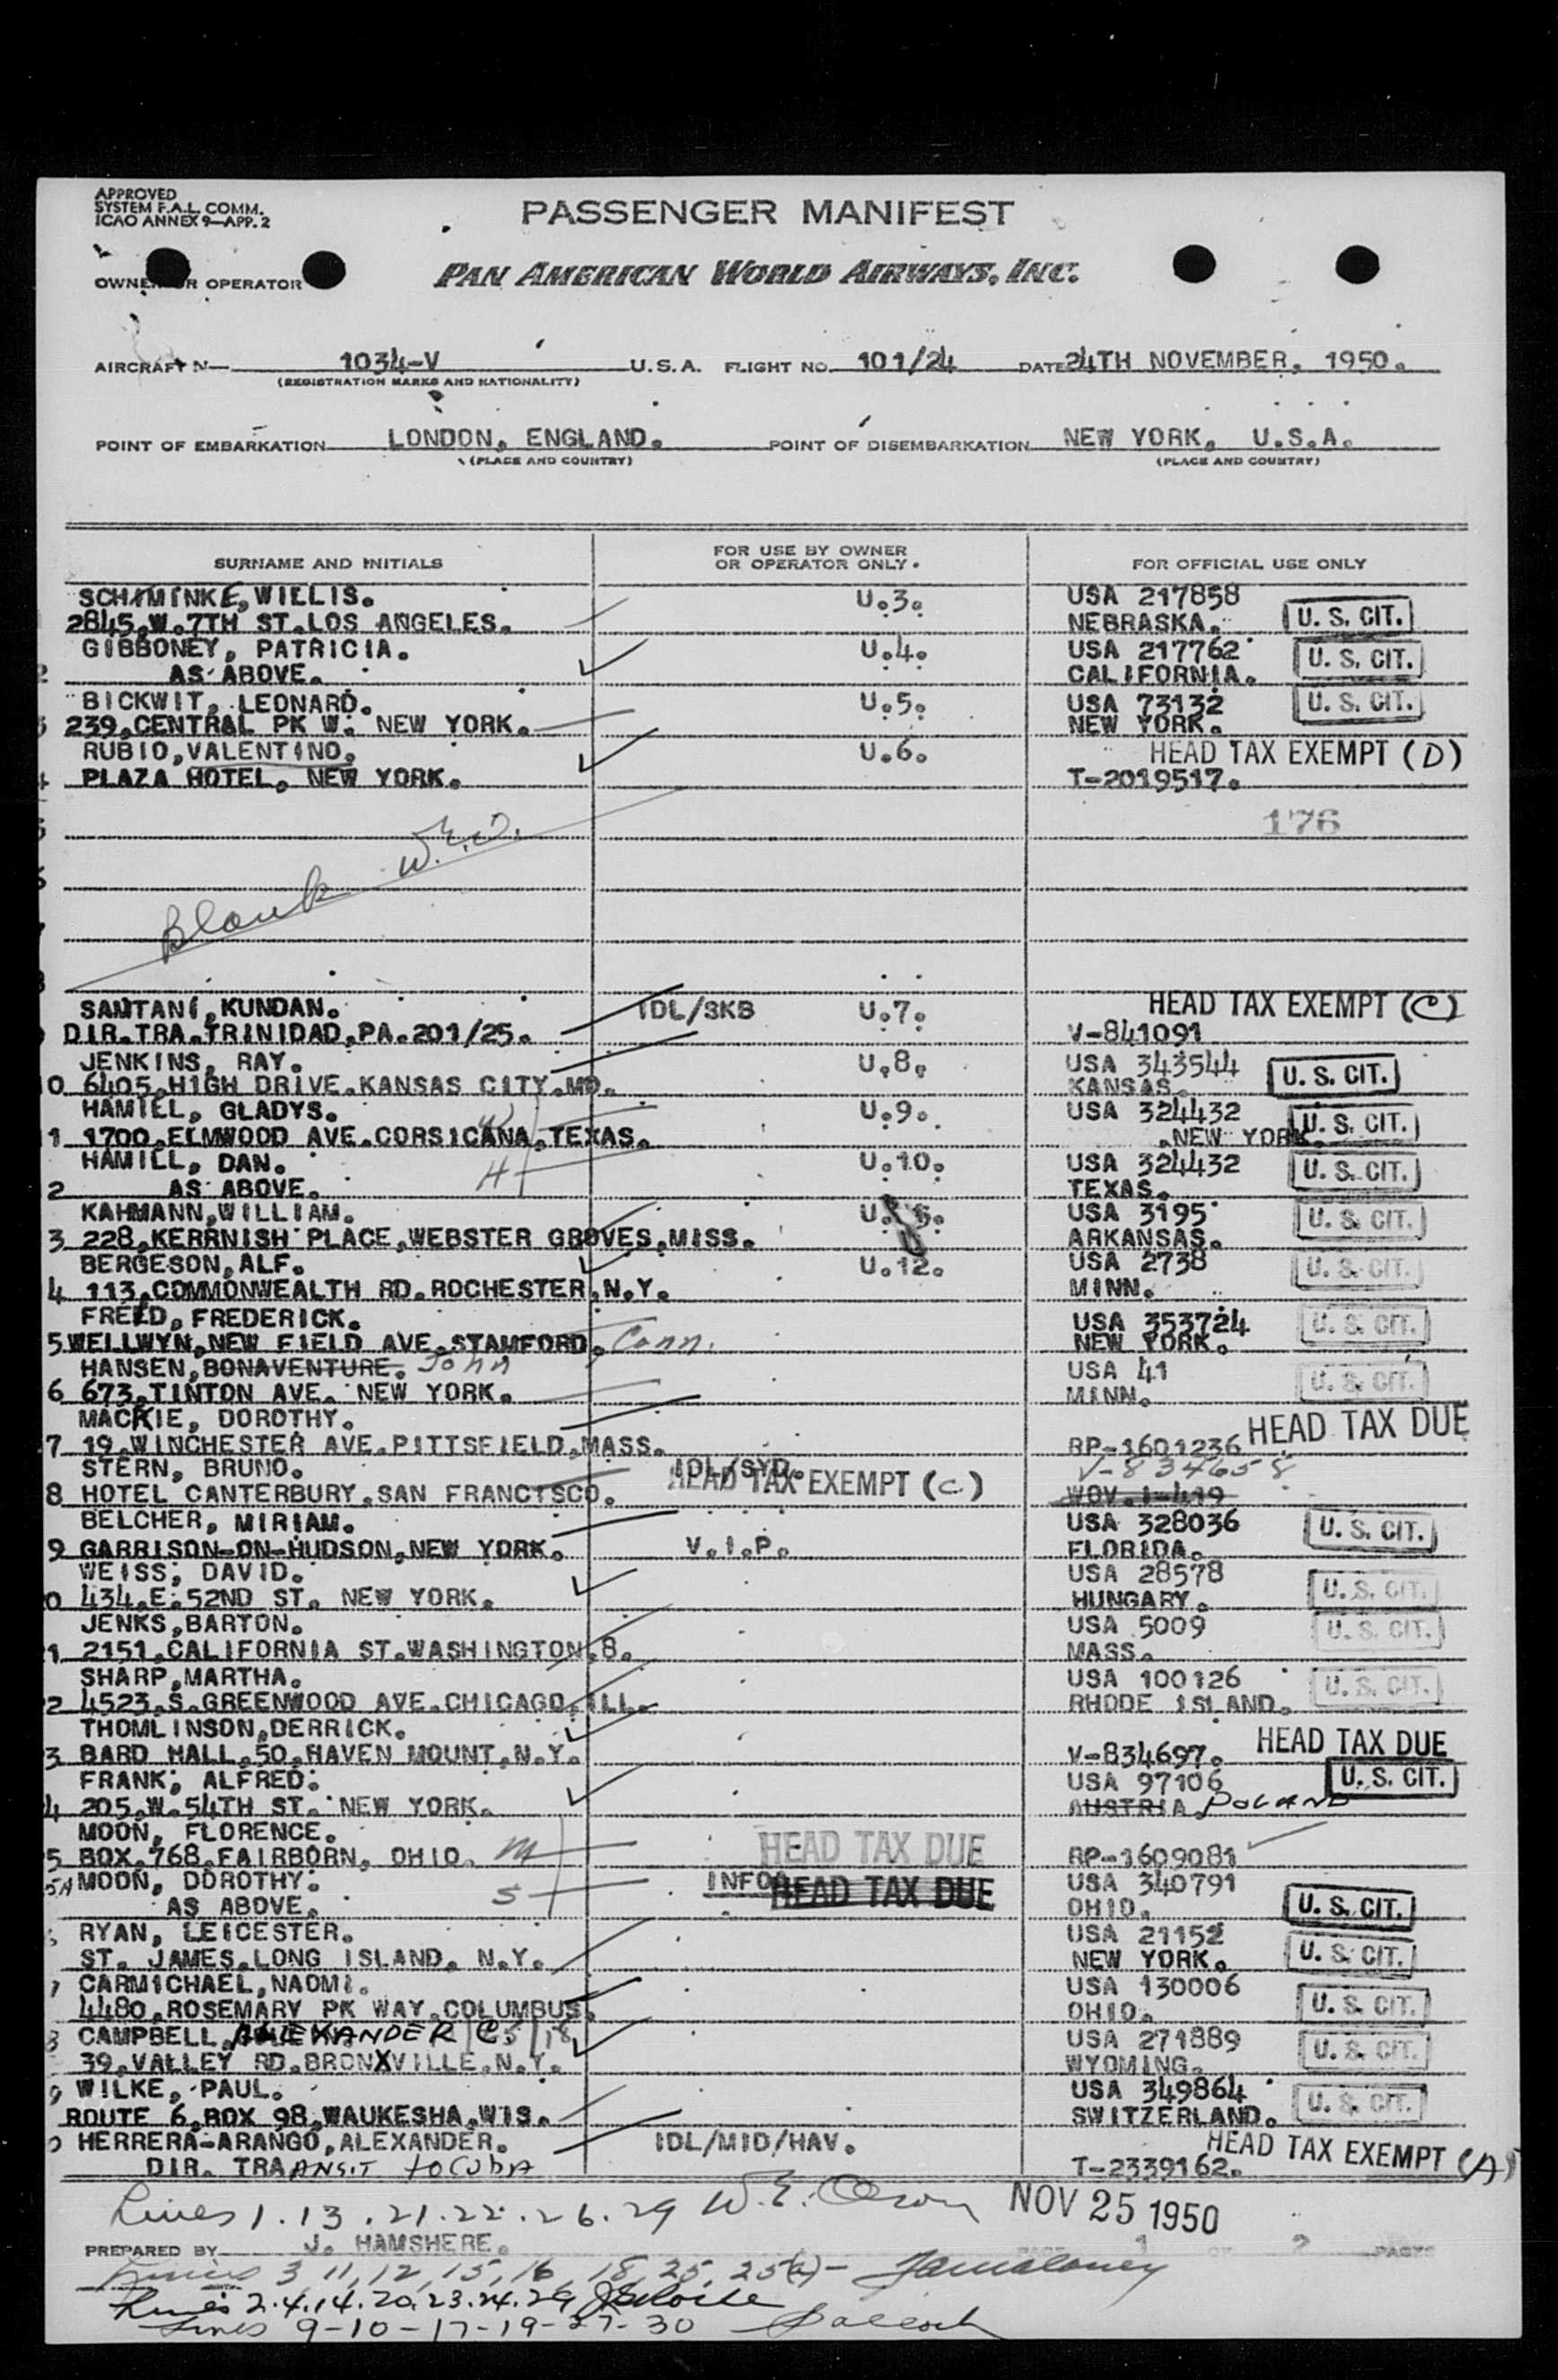 APPROVED
SYSTEM F.A.L. COMM.
ICAO ANNEX 9—APP. 2
PASSENGER MANIFEST
OWNER OR OPERATOR PAN AMERICAN WORLD AIRWAYS, INC.
AIRCRAFT N— 1034-V U.S.A. FLIGHT NO. 101/24 DATE 24TH NOVEMBER, 1950.
(REGISTRATION MARKS AND NATIONALITY)
POINT OF EMBARKATION LONDON, ENGLAND. POINT OF DISEMBARKATION NEW YORK, U.S.A.
(PLACE AND COUNTRY) (PLACE AND COUNTRY)
SURNAME AND INITIALS FOR USE BY OWNER OR OPERATOR ONLY. FOR OFFICIAL USE ONLY
SCHIMINKE, WILLIS. U.3. USA 217858
2845, W. 7TH ST. LOS ANGELES. NEBRASKA. U. S. CIT.
GIBBONEY, PATRICIA. U.4. USA 217762
2 AS ABOVE. CALIFORNIA. U. S. CIT.
BICKWIT, LEONARD. U.5. USA 73132
3 239, CENTRAL PK W. NEW YORK. NEW YORK. U. S. CIT.
RUBIO, VALENTINO. U.6. HEAD TAX EXEMPT (D)
4 PLAZA HOTEL, NEW YORK. T-2019517.
176
Blank W.E.O.
SAMTANI, KUNDAN. IDL/SKB U.7. HEAD TAX EXEMPT (C)
DIR. TRA. TRINIDAD, PA. 201/25. V-841091
JENKINS, RAY. U.8. USA 343544
0 6405, HIGH DRIVE, KANSAS CITY, MO. KANSAS. U. S. CIT.
HAMILL, GLADYS. W U.9. USA 324432
1 1700, ELMWOOD AVE. CORSICANA, TEXAS. NEW YORK. U. S. CIT.
HAMILL, DAN. H U.10. USA 324432
2 AS ABOVE. TEXAS. U. S. CIT.
KAHMANN, WILLIAM. USA 3195
3 228, KERRNISH PLACE, WEBSTER GROVES, MISS. ARKANSAS. U. S. CIT.
BERGESON, ALF. U.12. USA 2738
4 113, COMMONWEALTH RD. ROCHESTER, N.Y. MINN. U. S. CIT.
FREED, FREDERICK. USA 353724
5 WELLWYN, NEW FIELD AVE. STAMFORD, Conn. NEW YORK. U. S. CIT.
HANSEN, BONAVENTURE. John USA 41
6 673, TINTON AVE. NEW YORK. MINN. U. S. CIT.
MACKIE, DOROTHY. HEAD TAX DUE
7 19, WINCHESTER AVE. PITTSFIELD, MASS. RP-1601236
STERN, BRUNO. IDL/SYD. V-834658
8 HOTEL CANTERBURY, SAN FRANCISCO. HEAD TAX EXEMPT (C) WOV. I-419
BELCHER, MIRIAM. USA 328036
9 GARRISON-ON-HUDSON, NEW YORK. V.I.P. FLORIDA. U. S. CIT.
WEISS, DAVID. USA 28578
0 434, E. 52ND ST. NEW YORK. HUNGARY. U. S. CIT.
JENKS, BARTON. USA 5009
1 2151, CALIFORNIA ST. WASHINGTON, 8. MASS. U. S. CIT.
SHARP, MARTHA. USA 100126
2 4523, S. GREENWOOD AVE. CHICAGO, ILL. RHODE ISLAND. U. S. CIT.
THOMLINSON, DERRICK. HEAD TAX DUE
3 BARD HALL, 50, HAVEN MOUNT, N.Y. V-834697.
FRANK, ALFRED. USA 97106 U. S. CIT.
4 205, W. 54TH ST. NEW YORK. AUSTRIA POLAND
MOON, FLORENCE. HEAD TAX DUE
5 BOX, 768, FAIRBORN, OHIO. M RP-1609081
5A MOON, DOROTHY. S INFO HEAD TAX DUE USA 340791
AS ABOVE. OHIO. U. S. CIT.
RYAN, LEICESTER. USA 21152
ST. JAMES, LONG ISLAND, N.Y. NEW YORK. U. S. CIT.
7 CARMICHAEL, NAOMI. USA 130006
4480, ROSEMARY PK WAY, COLUMBUS. OHIO. U. S. CIT.
8 CAMPBELL, ALEXANDER USA 271889
39, VALLEY RD. BRONXVILLE, N.Y. WYOMING. U. S. CIT.
9 WILKE, PAUL. USA 349864
ROUTE 6, BOX 98, WAUKESHA, WIS. SWITZERLAND. U. S. CIT.
HERRERA-ARANGO, ALEXANDER. IDL/MID/HAV. HEAD TAX EXEMPT (A)
DIR. TRAANSIT to CUBA T-2339162.
Lines 1. 13. 21. 22. 26. 29 W. E. Olson NOV 25 1950
PREPARED BY J. HAMSHERE. PAGE 1 OF 2 PAGES
Lines 3 11, 12, 15, 16, 18, 25, 25(a)—
Lines 2. 4. 14. 20. 23. 24. 29
Lines 9-10-17-19-27-30